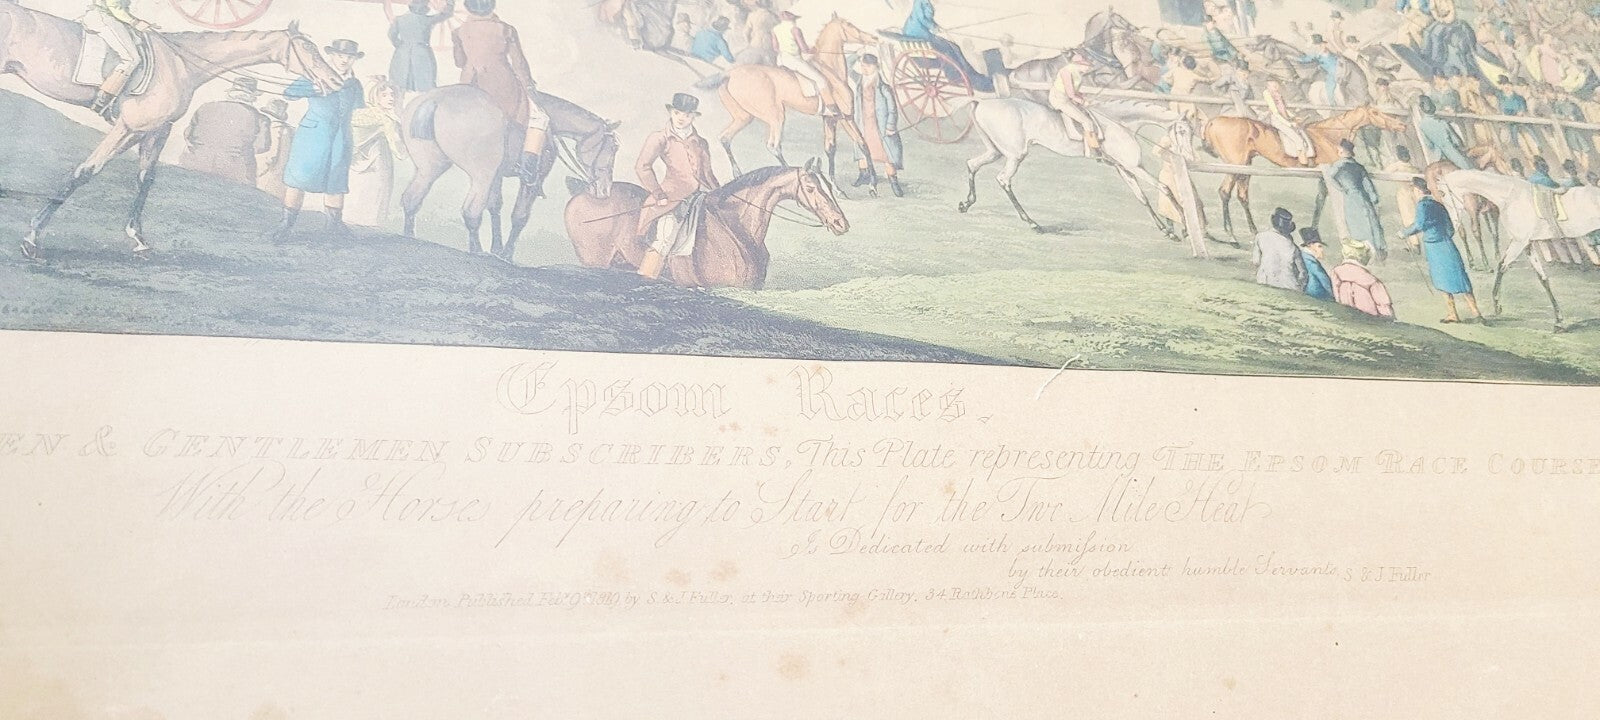 Epsom Races.
EN & GENTLEMEN SUBSCRIBERS, This Plate representing THE EPSOM RACE COURSE
With the Horses preparing to Start for the Two Mile Heat
Is Dedicated with submiſsion
by their obedient humble Servants, S & J Fuller
London Published Feb. 9th 1819, by S. & J Fuller, at their Sporting Gallery, 34 Rathbone Place.